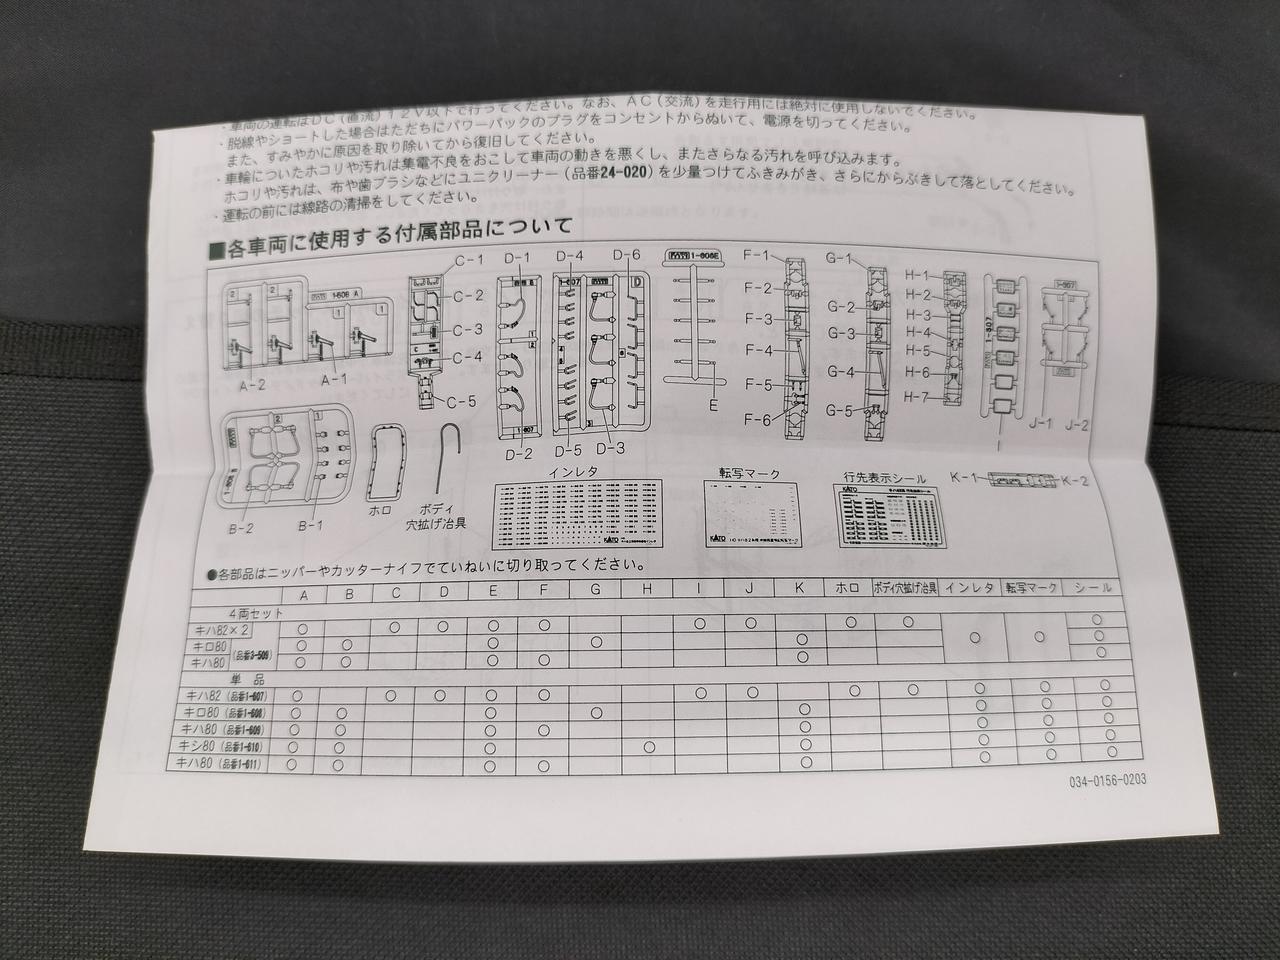 ・車両の運転はDC(直流)12V以下で行ってください。なお、AC(交流)を走行用には絶対に使用しないでください。
・脱線やショートした場合はただちにパワーパックのプラグをコンセントからぬいて、電源を切ってください。
また、すみやかに原因を取り除いてから復旧してください。
・車輪についたホコリや汚れは集電不良をおこして車両の動きを悪くし、またさらなる汚れを呼び込みます。
ホコリや汚れは、布や歯ブラシなどにユニクリーナー(品番24-020)を少量つけてふきみがき、さらにからぶきして落としてください。
・運転の前には線路の清掃をしてください。
■各車両に使用する付属部品について
2 2 1-606 A 1 1
A-2 A-1
C-1
C-2
C-3
C-4
C-5
D-1 D-4 D-6
1-607 D
1-607
D-2 D-5 D-3
1-606E
E
F-1
F-2
F-3
F-4
F-5
F-6
G-1
G-2
G-3
G-4
G-5
H-1
H-2
H-3
H-4
H-5
H-6
H-7
1-607
I
1-607
J-1 J-2
2 1
B-2 B-1
ホロ
ボディ
穴拡げ冶具
インレタ
KATO
転写マーク
KATO
行先表示シール
KATO
K-1 K-2
●各部品はニッパーやカッターナイフでていねいに切り取ってください。
A B C D E F G H I J K ホロ ボディ穴拡げ冶具 インレタ 転写マーク シール
4両セット
キハ82×2 (品番3-509) ○ ○ ○ ○ ○ ○ ○ ○ ○ ○ ○ ○
キロ80 ○ ○ ○ ○ ○ ○
キハ80 ○ ○ ○ ○ ○ ○
単品
キハ82(品番1-607) ○ ○ ○ ○ ○ ○ ○ ○ ○ ○ ○ ○
キロ80(品番1-608) ○ ○ ○ ○ ○ ○ ○ ○
キハ80(品番1-609) ○ ○ ○ ○ ○ ○ ○ ○
キシ80(品番1-610) ○ ○ ○ ○ ○ ○ ○ ○
キハ80(品番1-611) ○ ○ ○ ○ ○ ○ ○ ○
034-0156-0203